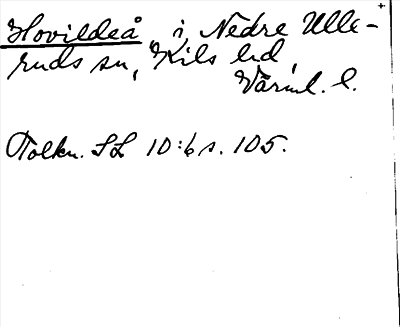 Hovildeå i Nedre Ulle-
ruds sn, Kils hd,
Värml. l.
Tolkn. SL 10:6 s. 105.